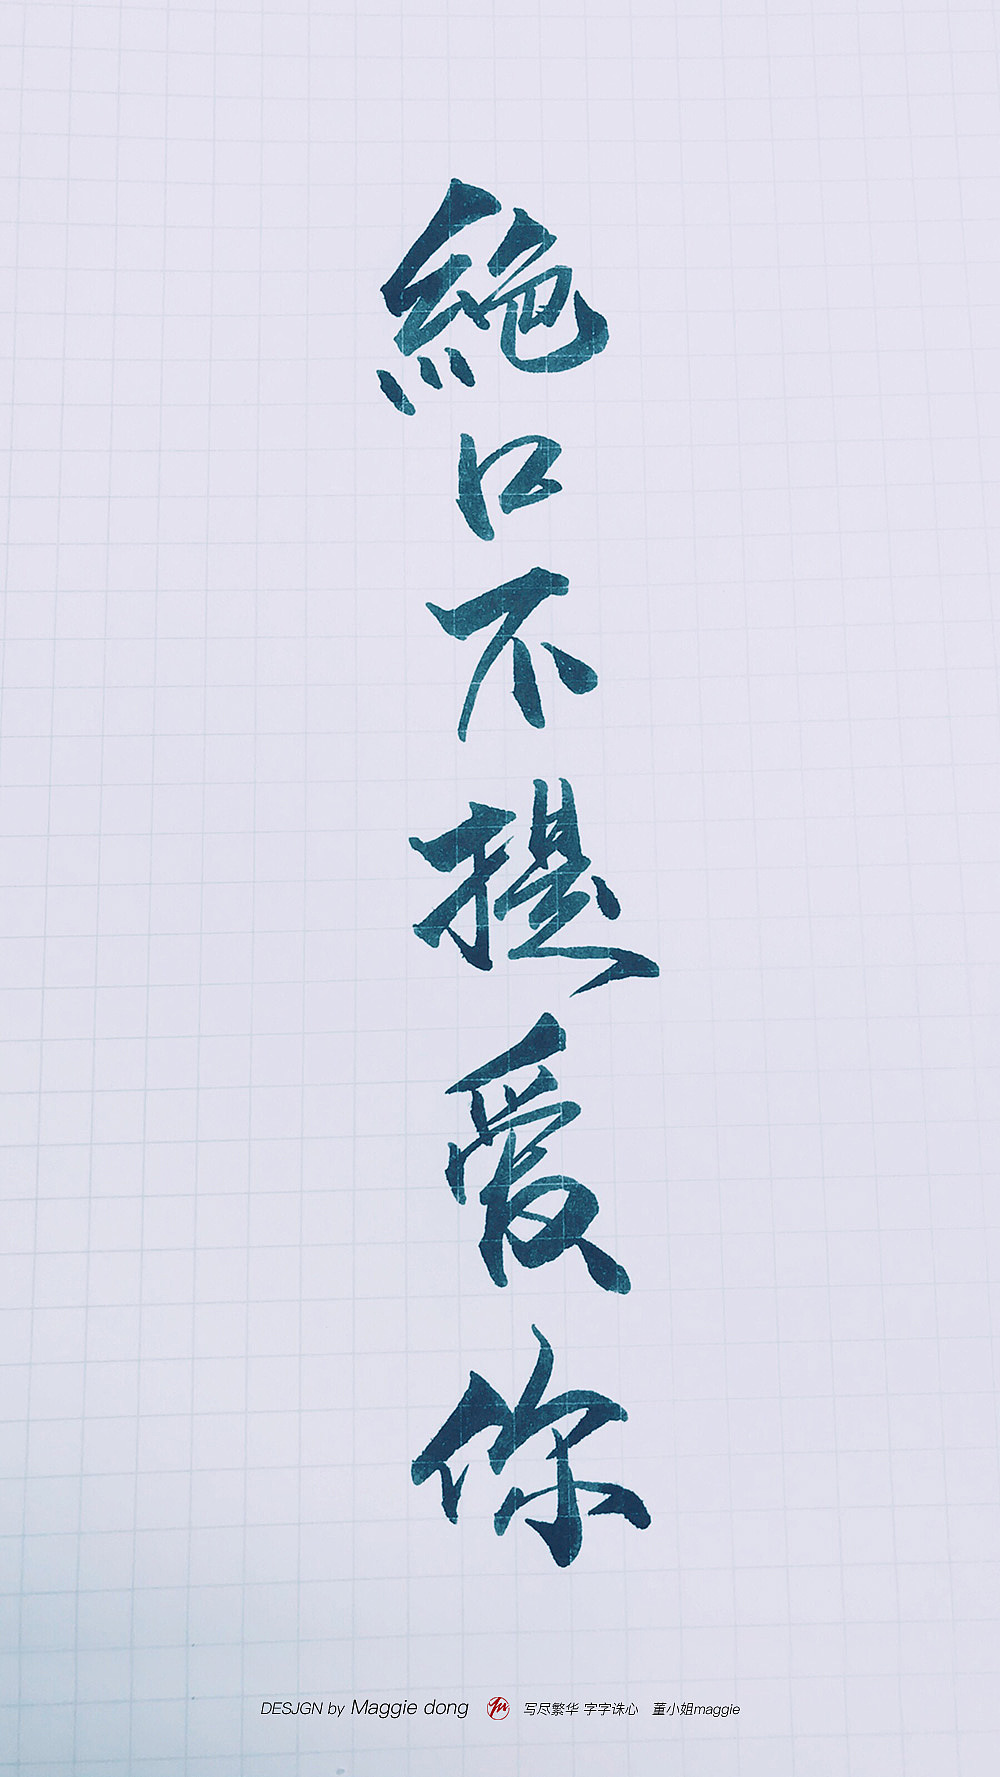 絶口不提爱你
DESJGN by Maggie dong 写尽繁华 字字诛心 董小姐maggie